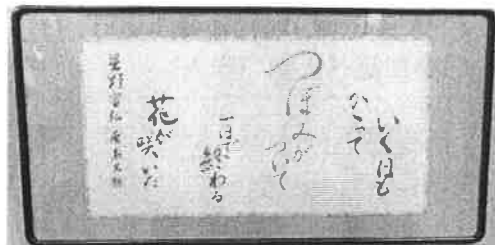 いくほども
かかって
つぼみが
ついて
一日で
終わる
花が
咲いた